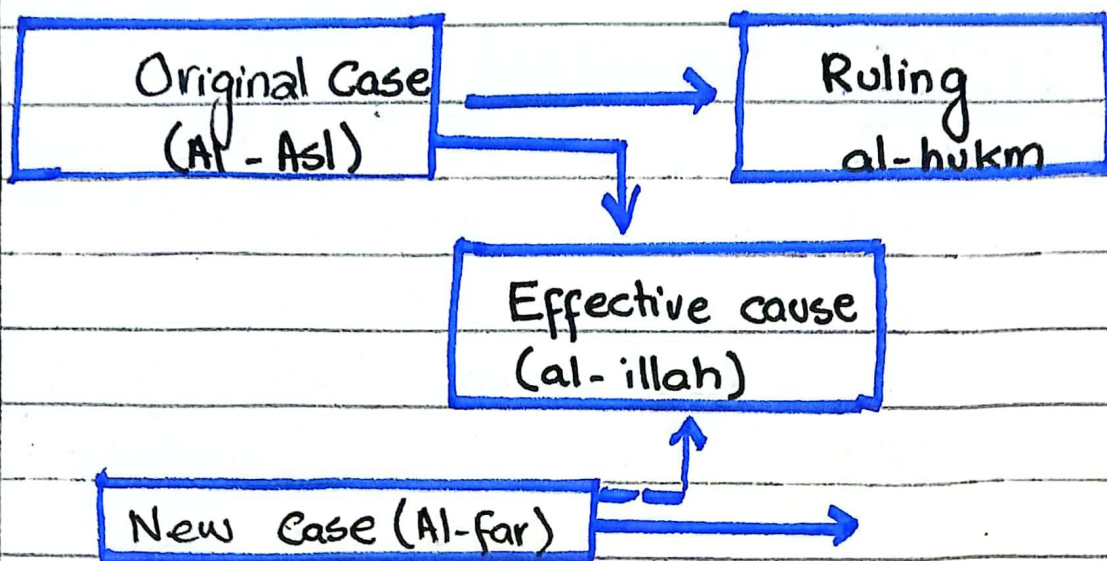 Original Case
(Al-Asl)
Ruling
al-hukm
Effective cause
(al-illah)
New Case (Al-far)